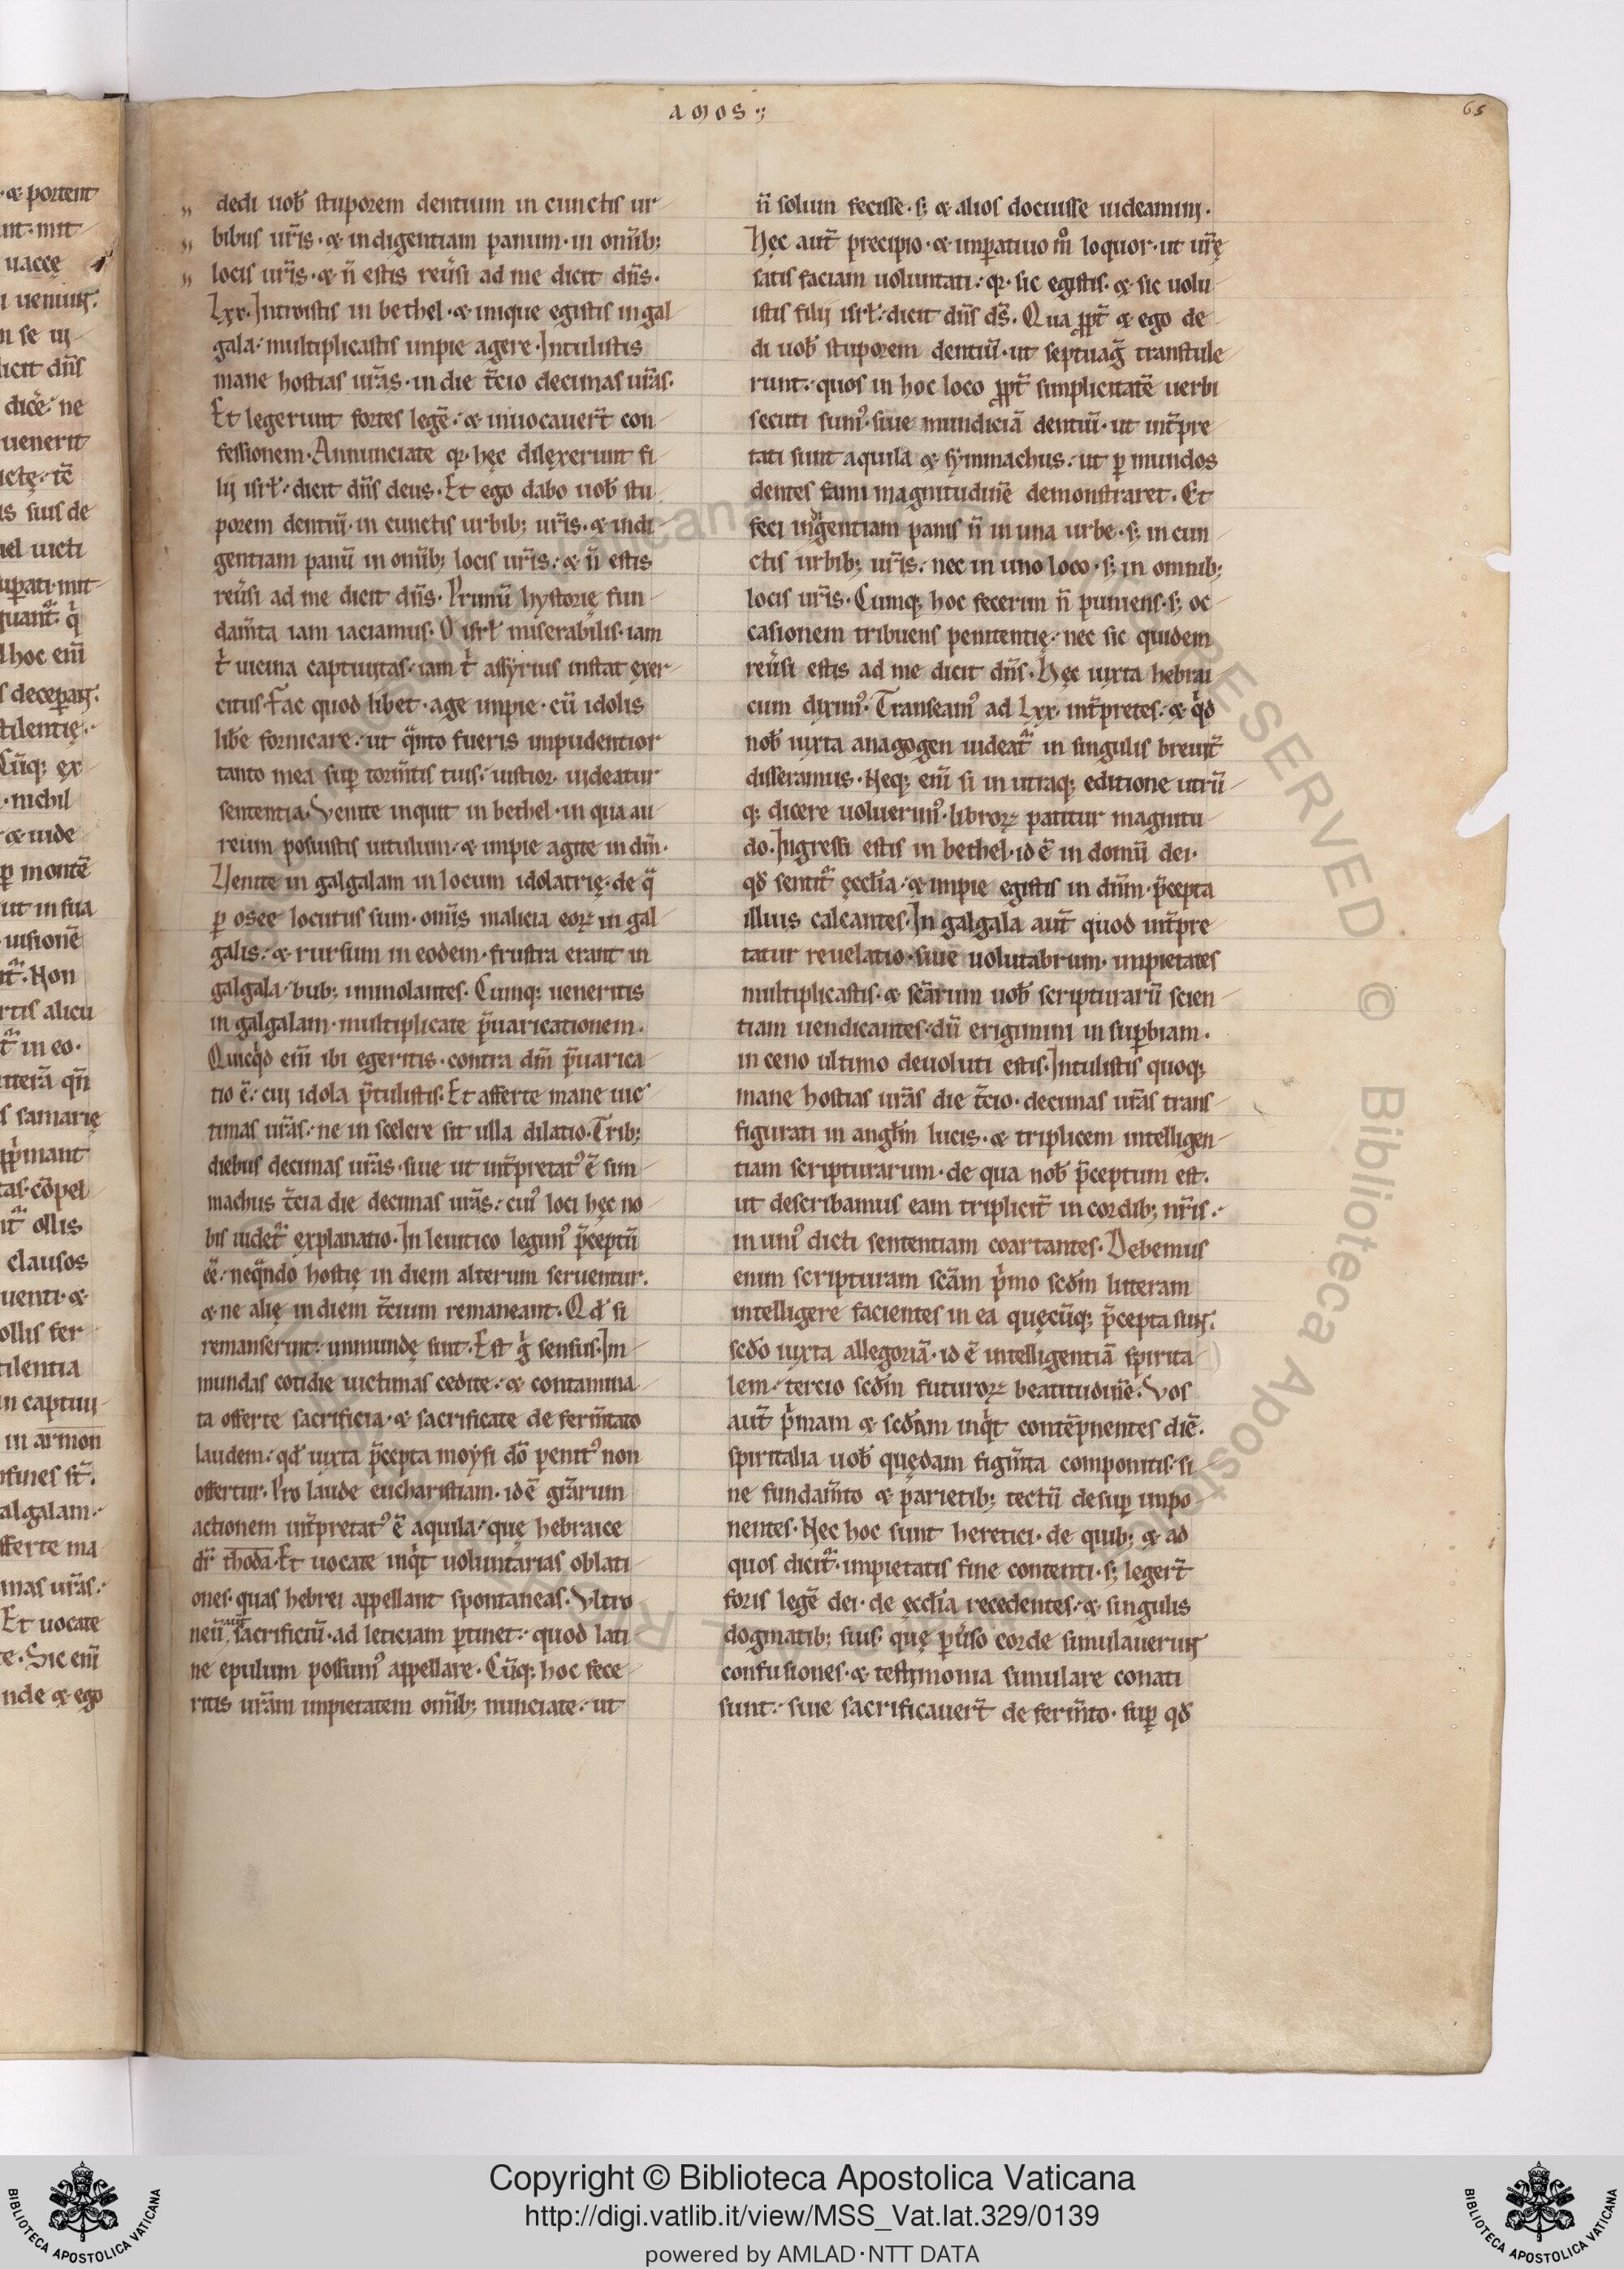 AMOS·;
65
dedi uob̄ stuporem dentium in cunctis ur
bibus ur̄is · & indigentiam panum · in om̄ib;
locis ur̄is · & n̄ estis reūsi ad me dicit dn̄s ·
Lxx · Introistis in bethel · & inique egistis in gal
gala · multiplicastis impie agere · Intulistis
mane hostias ur̄as · in die t̄cio decimas ur̄as ·
Et legerunt fortes legē · & inuocauer̄t con
fessionem · Annunciate q̄ · hęc dilexerunt fi
lij isrł · dicit dn̄s deus · Et ego dabo uob̄ stu
porem dentiū · in cunctis urbib; ur̄is · & indi
gentiam panū in om̄ib; locis ur̄is · & n̄ estis
reūsi ad me dicit dn̄s · Primū hystorię fun
dam̄ta iam iaciamus · O isrł miserabilis · iam
t̄ uicina captiuitas · iam t̄ assyrius instat exer
citus · Fac quod libet · age impie · cū idolis
libe fornicare · ut q̄nto fueris impudentior
tanto mea sup torm̄tis tuis · iustior · uideatur
sententia · Venite inquit in bethel · in qua au
reum posuistis uitulum · & impie agite in dn̄m ·
Venite in galgalam in locum idolatrię · de q̄
p osee locutus sum · om̄is malicia eoꝝ in gal
galis · & rursum in eodem · frustra erant in
galgala · bub; immolantes · Cumq; ueneritis
in galgalam · multiplicate p̄uaricationem ·
Quicq̄d em̄ ibi egeritis · contra dm̄ p̄uarica
tio ē · cui idola p̄tulistis · Et afferte mane uic
timas ur̄as · ne in scelere sit ulla dilatio · Trib;
diebus decimas ur̄as · siue ut int̄pretat᾽ ē sim
machus t̄cia die decimas ur̄as · cui᾽ loci hęc no
bis uidet᷑ explanatio · In leuitico legim᾽ p̄ceptū
ēē · neq̄ndo hostię in diem alterum seruentur ·
& ne alię in diem t̄cium remaneant · Qd̄ si
remanserint · immundę sint · Est g̊ sensus · Im
mundas cotidie uictimas cedite · & contamina
ta offerte sacrificia · & sacrificate de ferm̄tato
laudem · qd̄ iuxta p̄cepta moysi dō penit᾽ non
offertur · Pro laude eucharistiam · id ē gr̄arum
actionem int̄pretat᾽ ē aquila · quę hebraice
dr̄ thoda · Et uocate inq̄t uoluntarias oblati
ones · quas hebrei appellant spontaneas · Vltro
neū aūt sacrificiū · ad leticiam ptinet · quod lati
ne epulum possum᾽ appellare · Cūq; hoc fece
ritis ur̄am impietatem om̄ib; nunciate · ut
n̄ solum fecisse · s; & alios docuisse uideamini ·
Hęc aut̄ precipio · & impatiuo m̊ loquor · ut ur̄ę
satis faciam uoluntati · q̄ · sic egistis · & sic uolu
istis filij isrł · dicit dn̄s ds̄ · Qua ppt̄ & ego de
di uob̄ stuporem dentiū · ut septuaḡ transtule
runt · quos in hoc loco ppt̄ simplicitatē uerbi
secuti sum᾽ · siue mundiciā dentiū · ut int̄pre
tati sunt aquila & symmachus · ut p mundos
dentes fami magnitudinē demonstraret · Et
feci indigentiam panis n̄ in una urbe · s; in cun
ctis urbib; ur̄is · nec in uno loco · s; in omnib;
locis ur̄is · Cumq; hoc fecerim n̄ puniens · s; oc
casionem tribuens penitentię · nec sic quidem
reūsi estis ad me dicit dn̄s · Hęc iuxta hebrai
cum dixim᾽ · Transeam᾽ ad Lxx · int̄pretes · & q̄d
nob̄ iuxta anagogen uideat᷑ in singulis breuit̄
disseramus · Neq; em̄ si in utraq; editione utrū
q; dicere uoluerim᾽ · libroꝝ patitur magnitu
do · Ingressi estis in bethel · id ē in domū dei ·
qd̄ sentit᷑ ęcclia · & impie egistis in dn̄m · p̄cepta
illius calcantes · In galgala aut̄ quod int̄pre
tatur reuelatio · siue uolutabrum · impietates
multiplicastis · & sc̄arum uob̄ scripturarū scien
tiam uendicantes · dū erigimini in supbiam ·
in ceno ultimo deuoluti estis · Intulistis quoq;
mane hostias ur̄as die t̄cio · decimas ur̄as trans
figurati in angłm lucis · & triplicem intelligen
tiam scripturarum · de qua nob̄ p̄ceptum est ·
ut describamus eam triplicit̄ in cordib; nr̄is ·
in uni᾽ dicti sententiam coartantes · Debemus
enim scripturam sc̄am p̄mo scd̄m litteram
intelligere facientes in ea quęcūq; p̄cepta sunt ·
scd̄o iuxta allegoriā · id ē intelligentiā spirita
lem · tercio scd̄m futuroꝝ beatitudinē · Vos
aut̄ p̄mam & scd̄am inq̄t contēpnentes diē ·
spiritalia uob̄ quędam figm̄ta componitis · si
ne fundam̄to & parietib; tectū desup impo
nentes · Nec hoc sunt heretici · de quib; & ad
quos dicit᷑ · impietatis fine contenti · s; leger̄t
foris legē dei · de ęcclia recedentes · & singulis
dogmatib; suis · quę puso corde simulauerunt
confusiones · & testimonia simulare conati
sunt · siue sacrificauer̄t de ferm̄to · sup qd̄
Copyright © Biblioteca Apostolica Vaticana
http://digi.vatlib.it/view/MSS_Vat.lat.329/0139
powered by AMLAD·NTT DATA
BIBLIOTECA APOSTOLICA VATICANA
BIBLIOTECA APOSTOLICA VATICANA